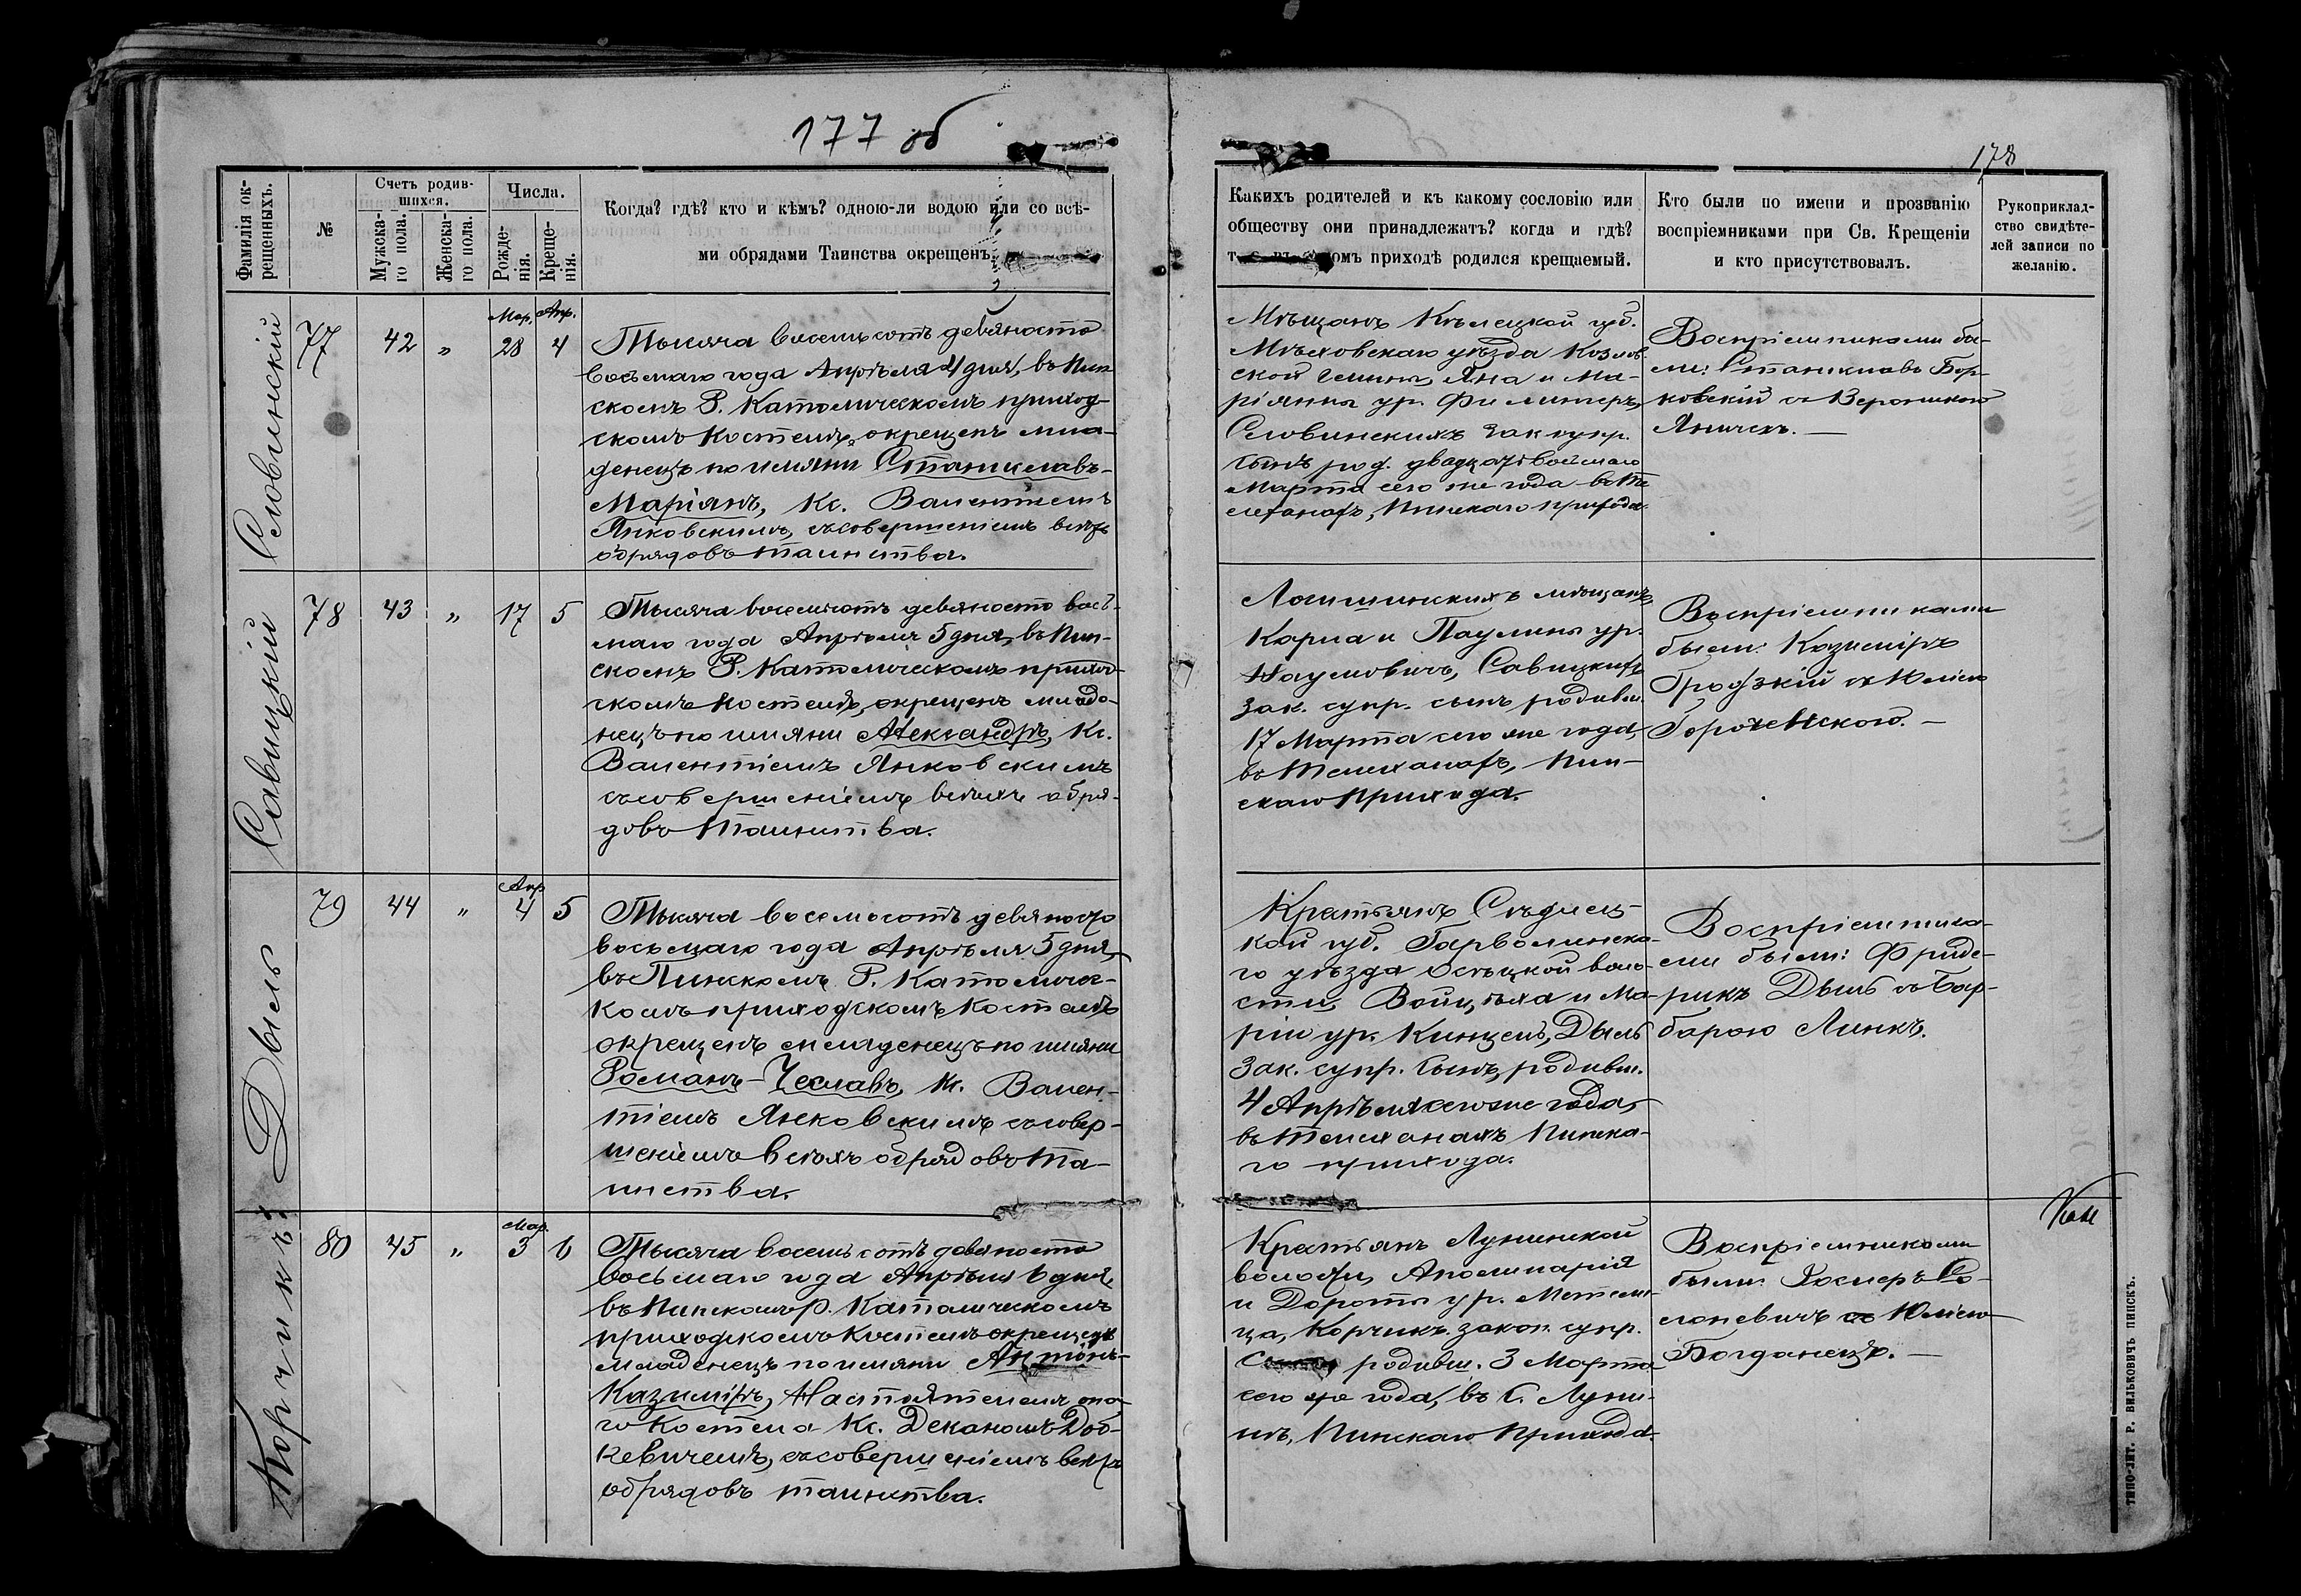 177 об
178
Фамилія ок-
рещенныхъ.
№
Счетъ родив-
шихся.
Мужска-
го пола.
Женска-
го пола.
Числа.
Рожде-
нія.
Креще-
нія.
Когда? гдѣ? кто и кѣмъ? одною-ли водою или со всѣ-
ми обрядами Таинства окрещенъ
Каких родителей и къ какому сословію или
обществу они принадлежатъ? когда и гдѣ?
приходѣ родился крещаемый.
Кто были по имени и прозванію
воспріемниками при Св. Крещеніи
и кто присутствовалъ.
Рукоприклад-
ство свидѣте-
лей записи по
желанію.
Словинскій
77
42
"
Мар.
28
Апр.
4
Тысяча восемьсотъ девяносто
восьмаго года Апрѣля 4 дня, въ Пин
скомъ Р. Католическомъ приход-
скомъ Костелѣ, окрещенъ мла-
денецъ по имяни Станиславъ-
Маріянъ, Кс. Валентіемъ
Янковскимъ, съ совершеніемъ всѣхъ
обрядовъ таинства.
Мѣщанъ Кѣлецкой губ.
Мѣховскаго уѣзда Козлов-
ской Гмины, Яна и Ма-
ріянны ур.
Словинскихъ зак. супр.
сынъ род. двадцать восьмаго
Марта сего же года въ Те
леханахъ, Пинскаго прихода.
Воспріемниками бы-
ли: Станиславъ Бор-
ковскій съ Вероникою
Яничекъ. —
Савицкій
78
43
"
17
5
Тысяча восемьсотъ девяносто вось-
маго года Апрѣля 5 дня, въ Пин-
скомъ Р. Католическомъ приход-
скомъ Костелѣ, окрещенъ младе-
нецъ по имяни Александръ, Кс.
Валентіемъ Янковскимъ
съ совершеніемъ всѣхъ обря-
довъ Таинства.
Логишинскихъ мѣщанъ,
Карла и Паулины ур.
Наумовичъ, Савицкихъ
зак. супр. сынъ родивш.
17 Марта сего же года,
въ Телеханахъ, Пин-
скаго прихода.
Воспріемниками
были: Казиміръ
Гродзкій съ Юліею
—
Дыль
79
44
"
Апр
4
5
Тысяча восемьсотъ девяносто
восьмаго года Апрѣля 5 дня,
въ Пинскомъ Р. Католичес-
комъ приходскомъ Костелѣ
окрещенъ младенецъ по имяни
Романъ-Чеславъ, Кс. Вален-
тіемъ Янковскимъ съ совер-
шеніемъ всѣхъ обрядовъ Та-
инства.
Крестьянъ Сѣдлец-
кой губ. Гарволинска-
го уѣзда волос-
сти, Войцѣха и Ма-
ріи ур. Кинцель, Дыль
зак. супр. сынъ, родивш.
4 Апрѣля сего же года,
въ Телеханахъ Пинска-
го прихода.
Воспріемника-
ми были: Фриде-
рикъ Дыль съ Бар-
барою Линкъ.
Корчикъ
80
45
"
Мар.
3
6
Тысяча восемьсотъ девяносто
восьмаго года Апрѣля 6 дня,
въ Пинскомъ Р. Католическомъ
приходскомъ Костелѣ окрещенъ
младенецъ по имяни Антонъ-
Казиміръ, Настоятелемъ она-
го Костела Кс. Деканомъ Доб-
кевичемъ, съ совершеніемъ всѣхъ
обрядовъ таинства.
Крестьянъ Лунинской
волости, Аполинарія
и Дороты ур. Метели-
ца, Корчикъ закон. супр.
родивш. 3 Марта
сего же года, въ С. Луни-
нѣ, Пинскаго прихода.
Воспріемниками
были:
съ Юліею
Богданецъ. —
ТИПО-ЛИТ. Р. ВИЛЬКОВИЧЪ ПИНСКЪ.